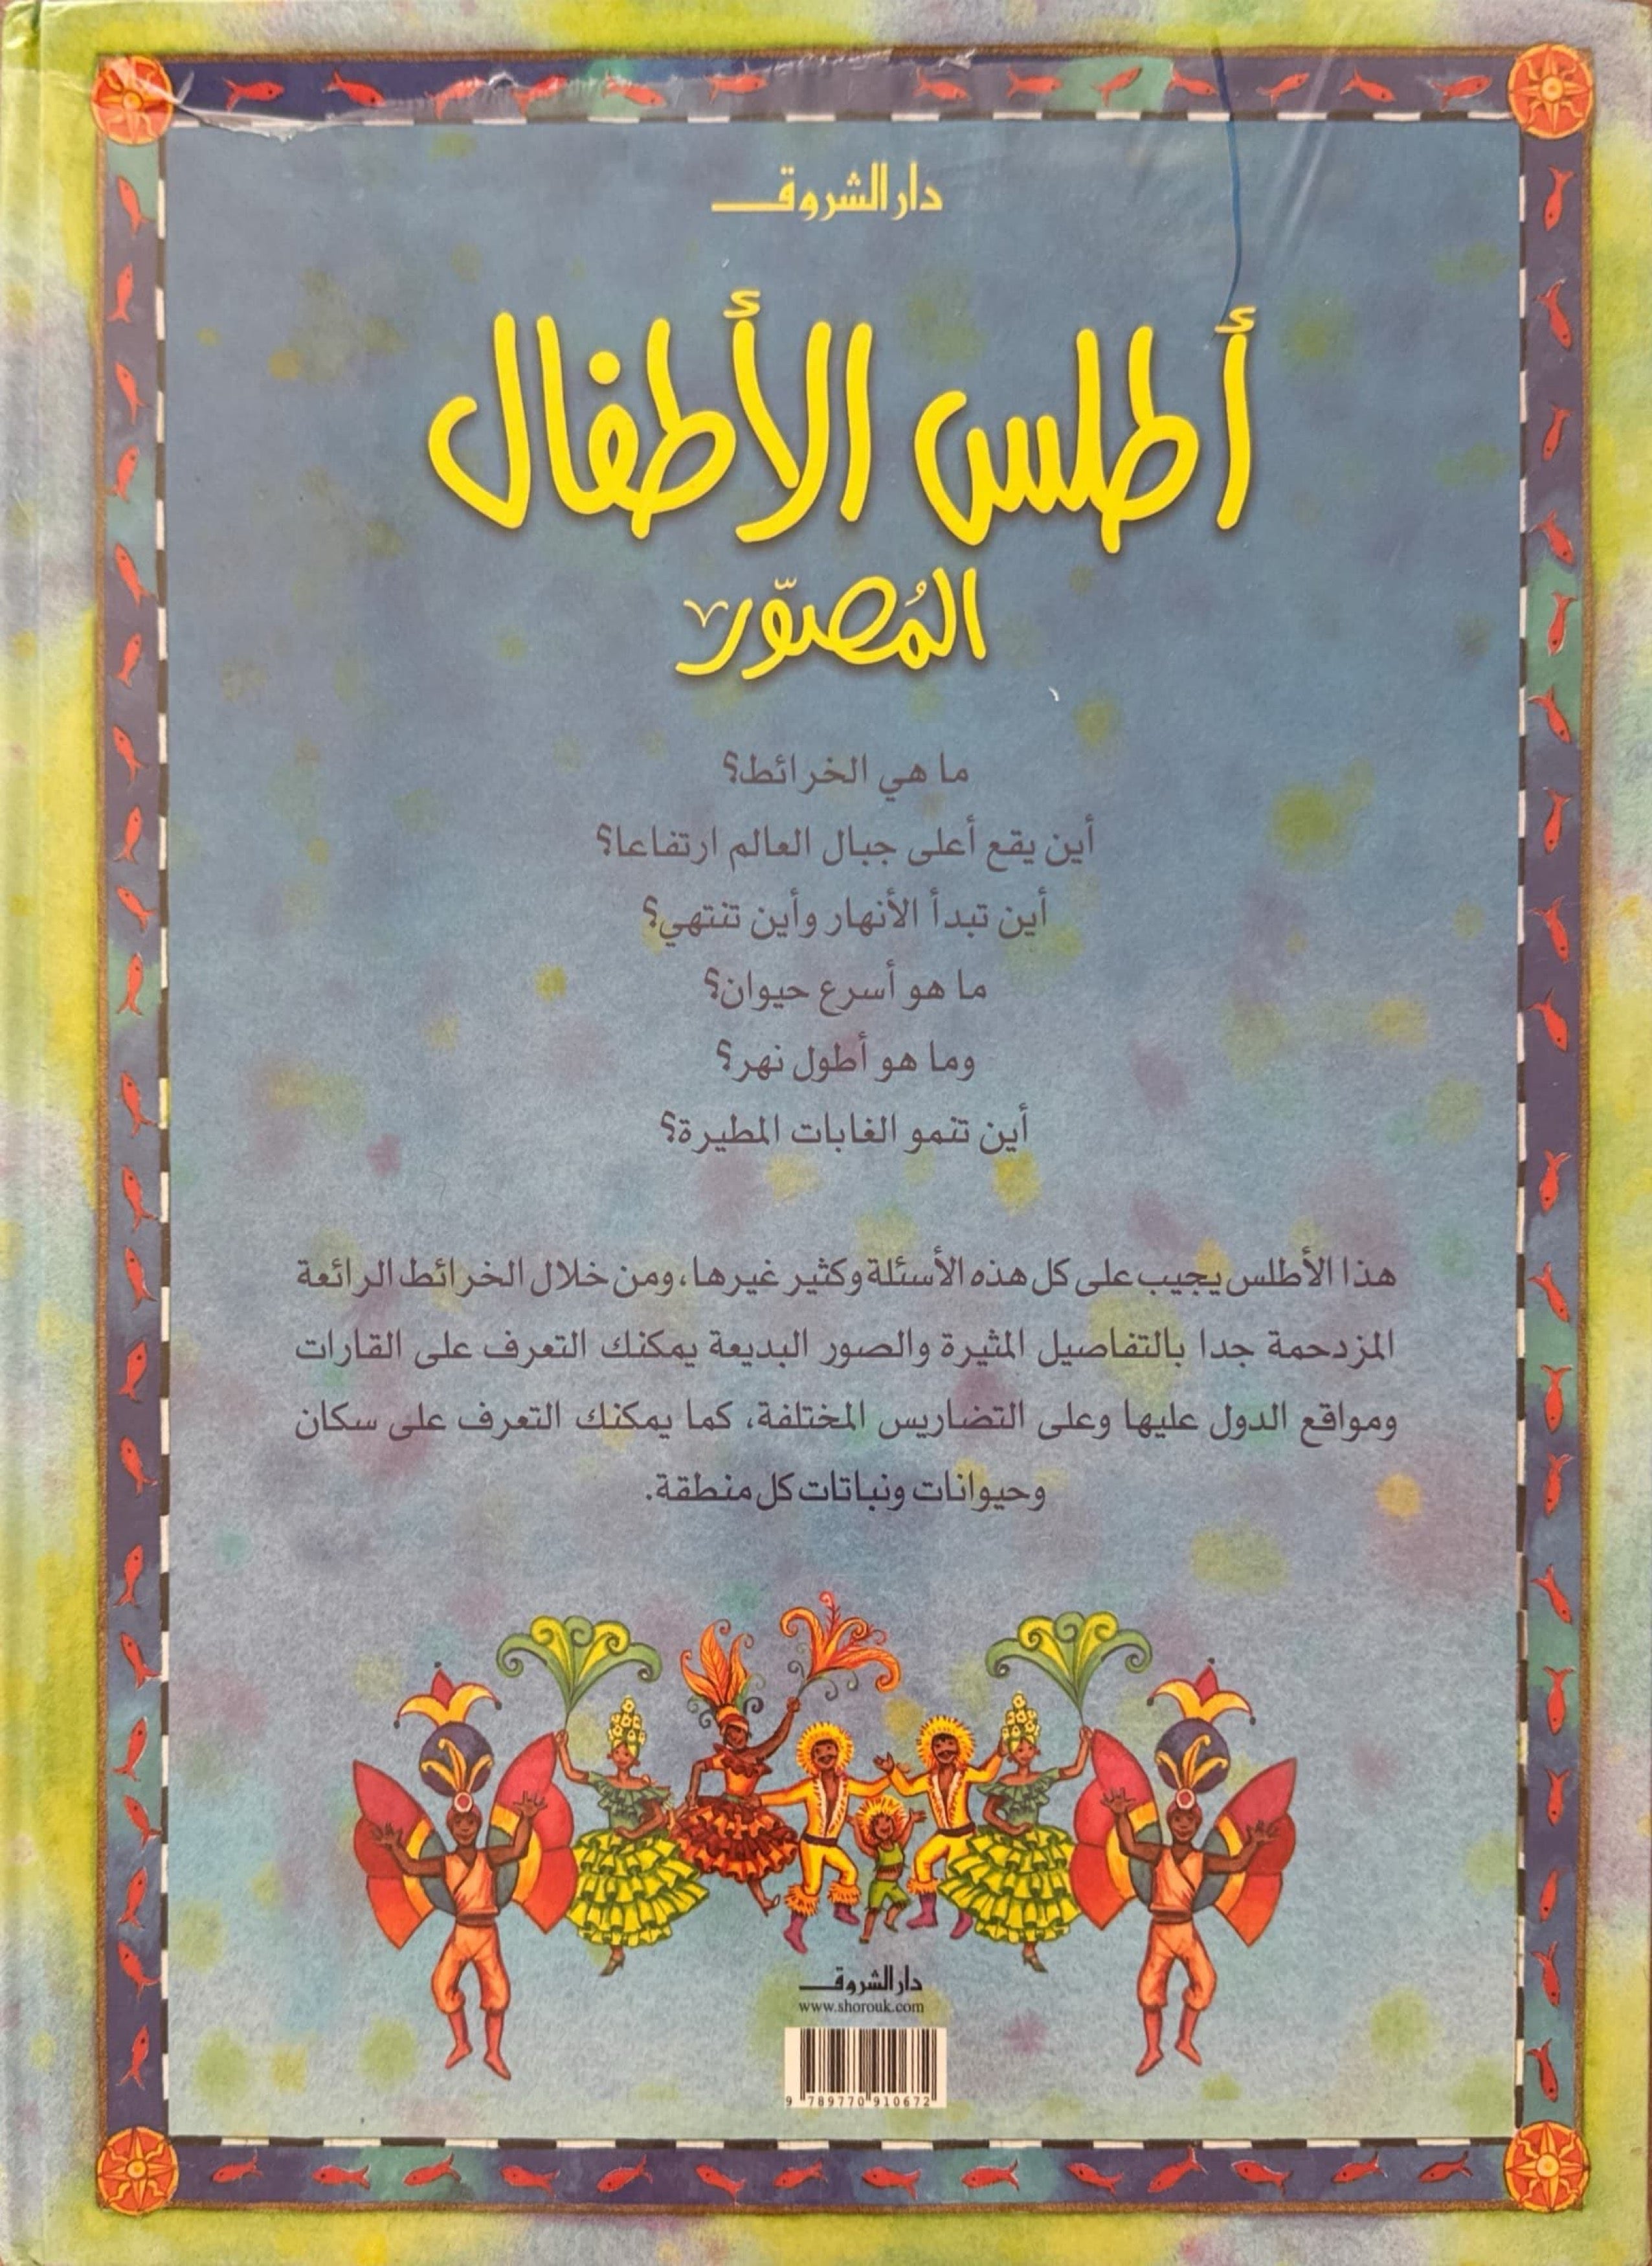 دار الشروق
أطلس الأطفال
المُصوّر
ما هي الخرائط؟
أين يقع أعلى جبال العالم ارتفاعا؟
أين تبدأ الأنهار وأين تنتهي؟
ما هو أسرع حيوان؟
وما هو أطول نهر؟
أين تنمو الغابات المطيرة؟
هذا الأطلس يجيب على كل هذه الأسئلة وكثير غيرها، ومن خلال الخرائط الرائعة
المزدحمة جدا بالتفاصيل المثيرة والصور البديعة يمكنك التعرف على القارات
ومواقع الدول عليها وعلى التضاريس المختلفة، كما يمكنك التعرف على سكان
وحيوانات ونباتات كل منطقة.
دار الشروق
www.shorouk.com
9 789770 910672